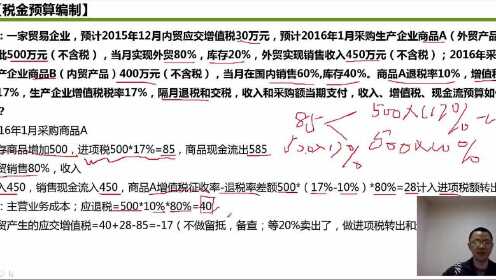 【税金预算编制】
:一家贸易企业,预计2015年12月内贸应交增值税30万元,预计2016年1月采购生产企业商品A(外贸产品
批500万元(不含税),当月实现外贸80%,库存20%,外贸实现销售收入450万元(不含税);2016年采
产企业商品B(内贸产品)400万元(不含税),当月在国内销售60%,库存40%。商品A退税率10%,增值
17%,生产企业增值税税率17%,隔月退税和交税,收入和采购额当期支付,收入、增值税、现金流预算如
?
16年1月采购商品A
存商品增加500,进项税500*17%=85,商品现金流出585
贸销售80%,收入
入450,销售现金流入450,商品A增值税征收率-退税率差额500*(17%-10%)*80%=28计入进项税额转出
:主营业务成本;应退税=500*10%*80%=40
贸产生的应交增值税=40+28-85=-17(不做留抵,备查;等20%卖出了,做进项税转出和
85
500×17%
500×10%